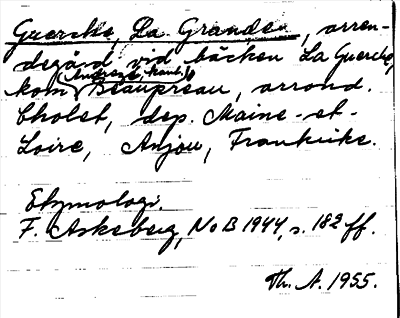 Guerche, La Grande, arren-
degård vid bäcken La Guerche,
(Andrezé, kant.)
kom Beaupreau, arrond.
Cholet, dep. Maine-et-
Loire, Anjou, Frankrike.
Etymologi.
F. Askeberg, NoB 1944, s. 182 ff.
Th. A. 1955.